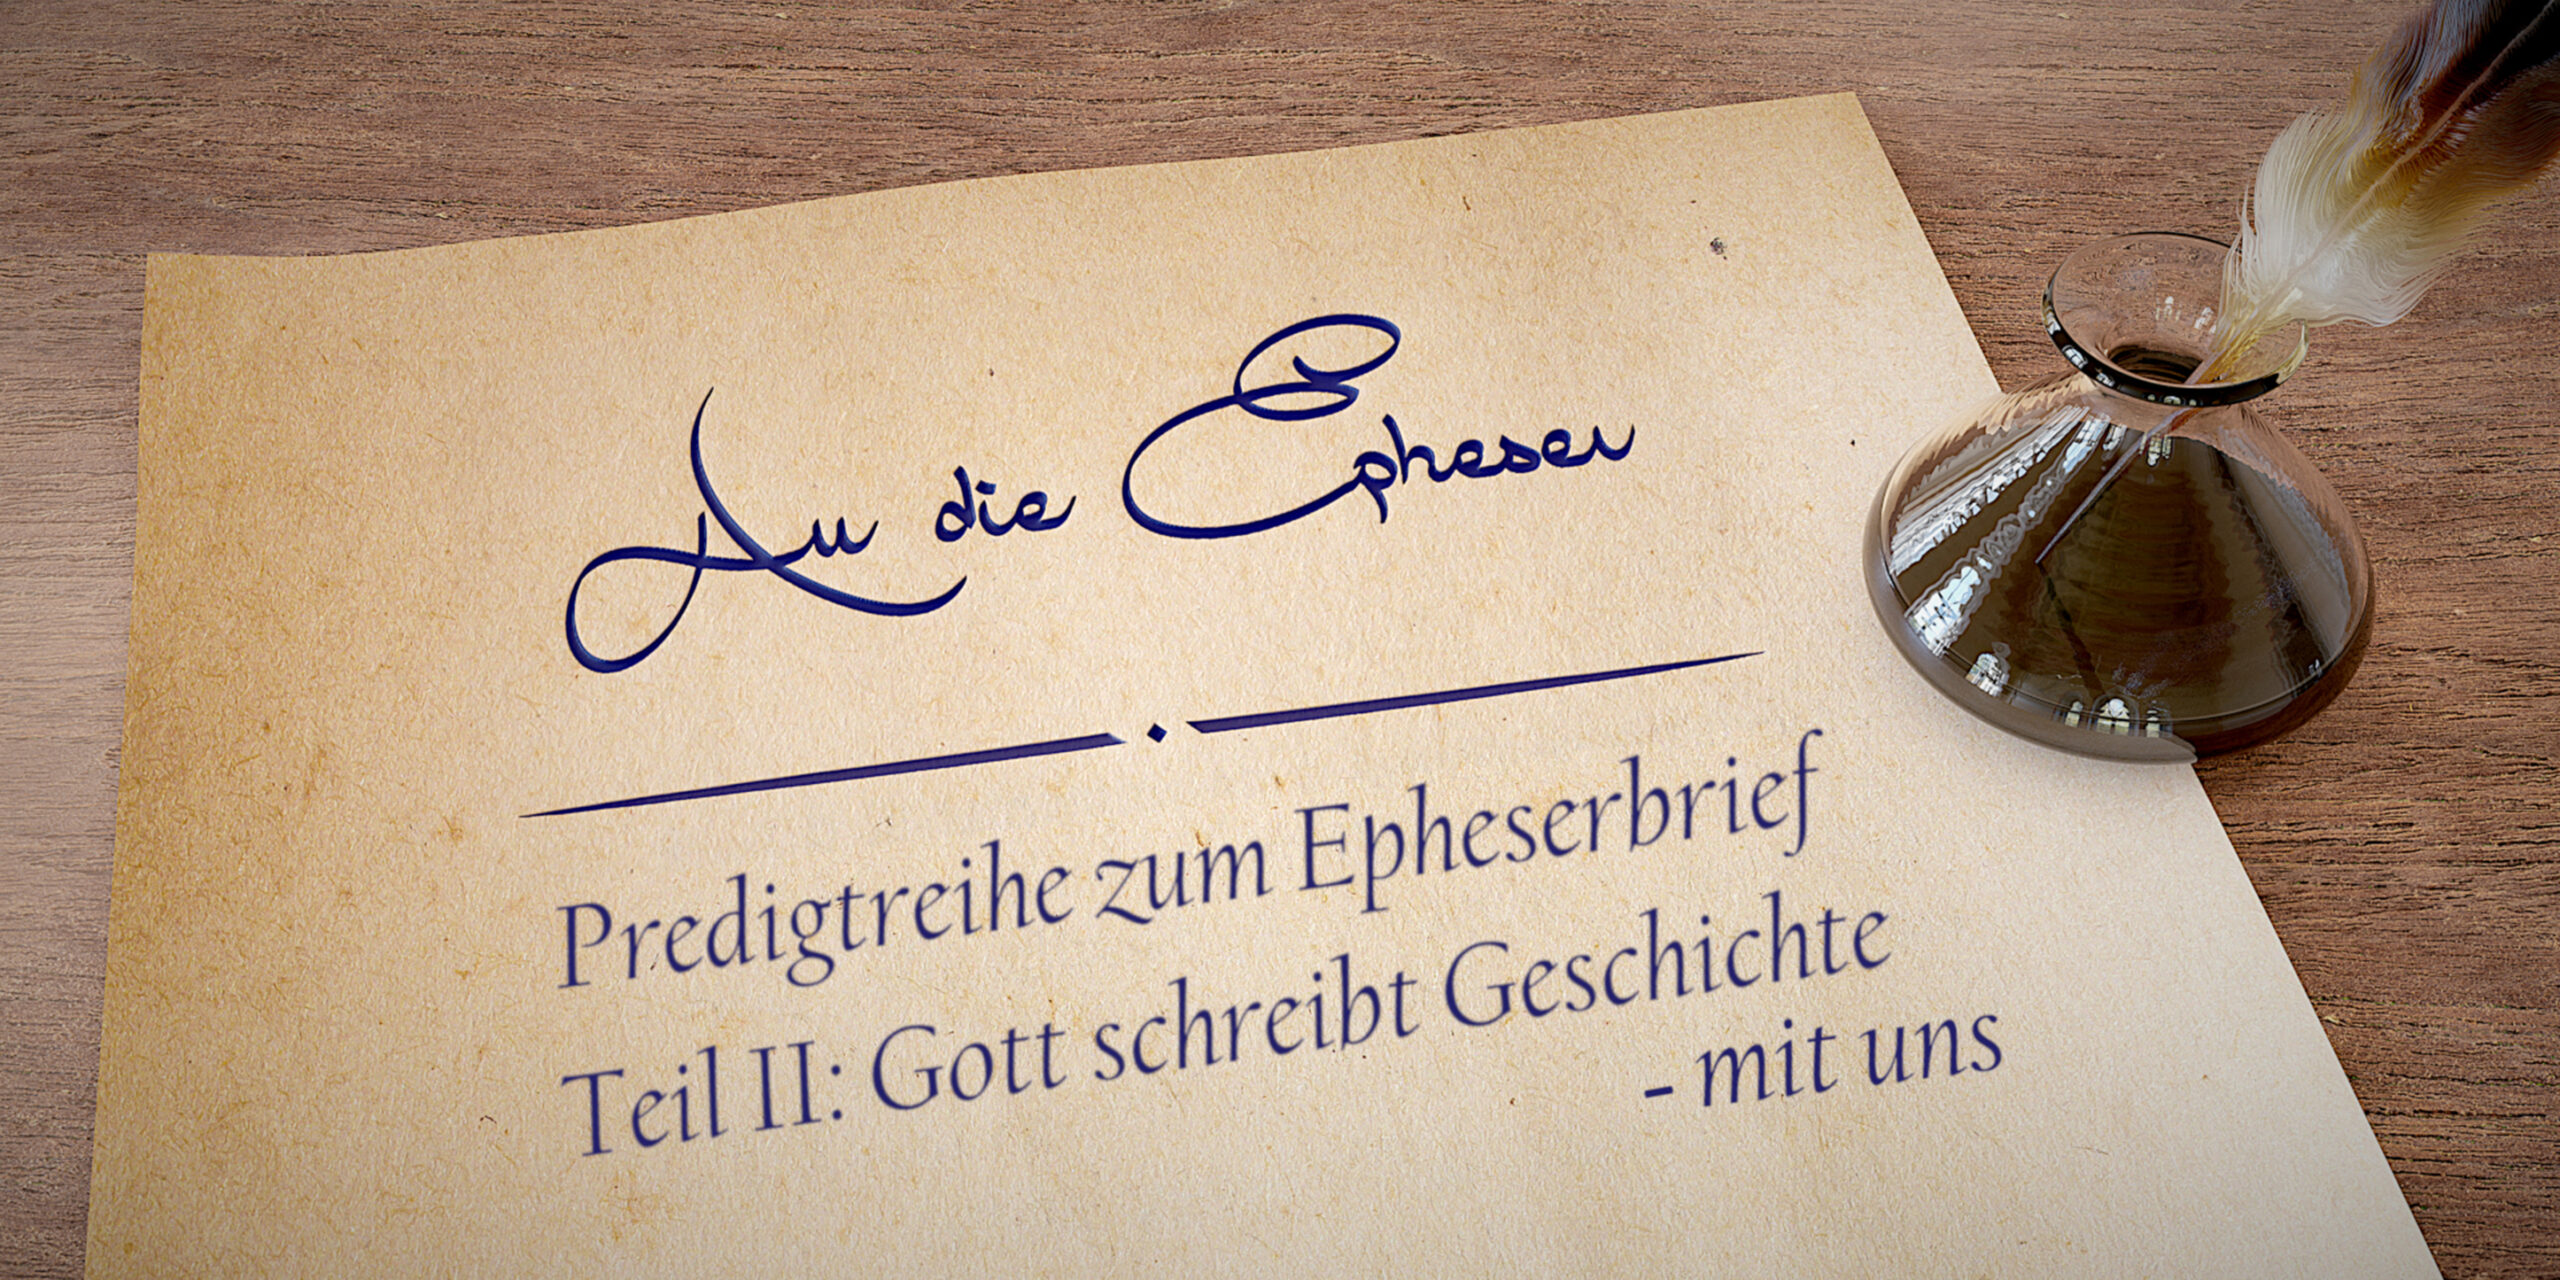 An die Epheser
Predigtreihe zum Epheserbrief
Teil II: Gott schreibt Geschichte
- mit uns